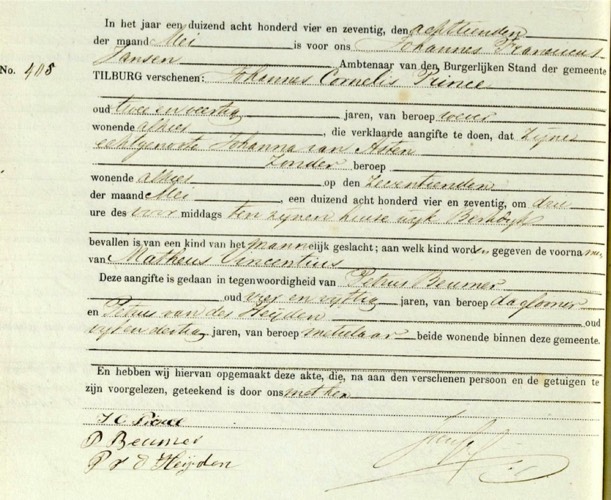 In het jaar een duizend acht honderd vier en zeventig, den achttienden
der maand Mei is voor ons Johannes Franciscus
Jansen Ambtenaar van den Burgerlijken Stand der gemeente
No. 408 TILBURG verschenen: Johannes Cornelis Prince
oud twee en veertig jaren, van beroep wever
wonende alhier, die verklaarde aangifte te doen, dat zijne
echtgenoote Johanna van Asten
Zonder beroep
wonende alhier op den Zeventienden
der maand Mei, een duizend acht honderd vier en zeventig, om drie
ure des voor middags ten zijnen huise wijk Berkdijk
bevallen is van een kind van het mannelijk geslacht; aan welk kind worden gegeven de voornamen
van Matheus Vincentius
Deze aangifte is gedaan in tegenwoordigheid van Petrus Beumer
oud vier en vijftig jaren, van beroep daglooner
en Petrus van der Heijden oud
vijf en dertig jaren, van beroep metselaar beide wonende binnen deze gemeente.
En hebben wij hiervan opgemaakt deze akte, die, na aan den verschenen persoon en de getuigen te
zijn voorgelezen, geteekend is door ons met hen
P Beumer
P v d Heijden